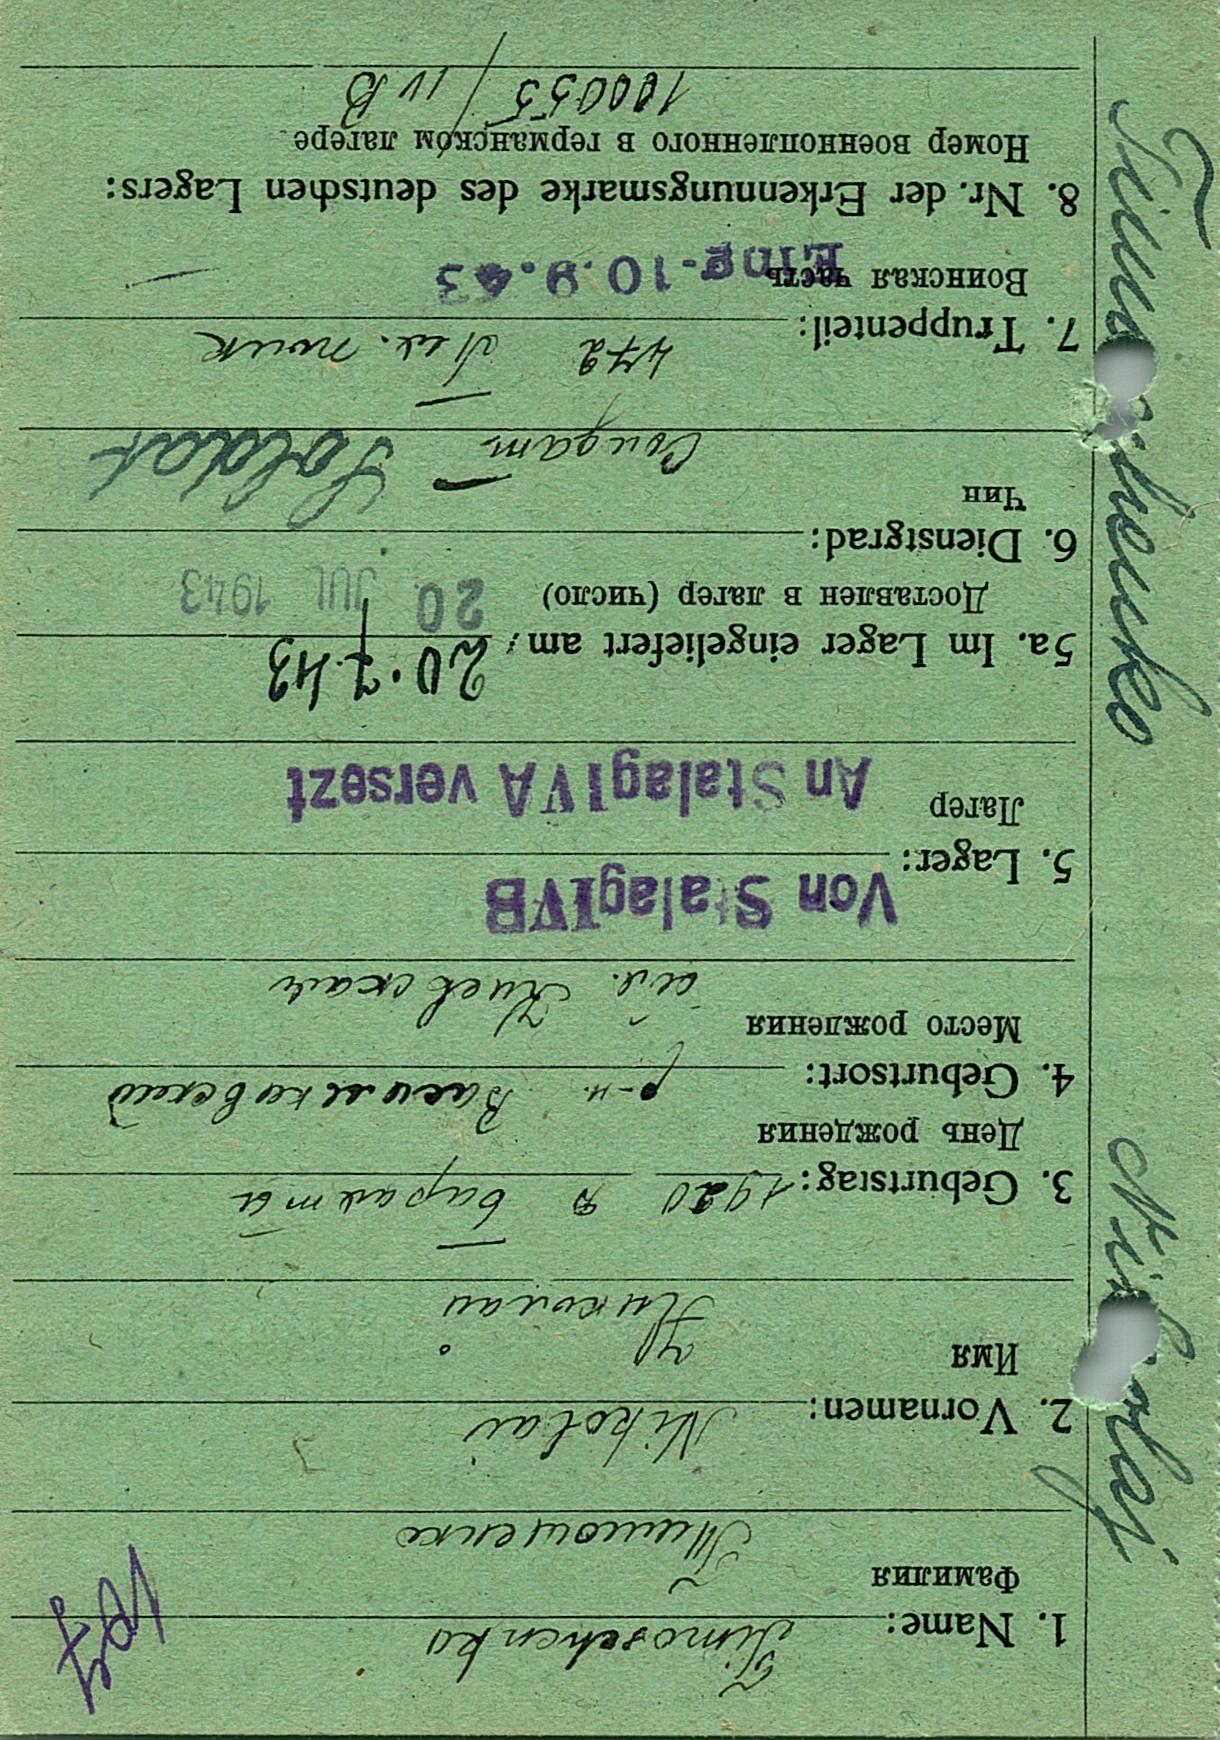 167
1. Name: Timoschenko
Фамилия
Тимошенко
2. Vornamen: Nikolai
Имя
Николай
3. Geburtstag: 1920
День рождения
4. Geburtsort: р-н. Васильковский
Место рождения
об. Киевская
5. Lager: Von Stalag IVB
Лагер
An Stalag IVA versezt
5a. Im Lager eingeliefert am: 20.7.43
Доставлен в лагер (число) 20 JUL 1943
6. Dienstgrad:
Чин
Солдат Soldat
7. Truppenteil: 472 полк
Воинская часть Eing. 10.9.43
8. Nr. der Erkennungsmarke des deutschen Lagers:
Номер военнопленного в германском лагере
100055/IV B
Nikolaj